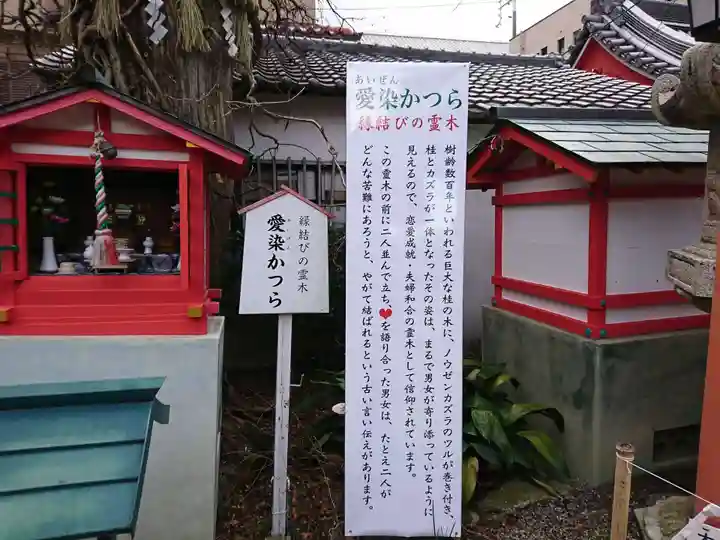 あいぜん
愛染かつら
縁結びの霊木
樹齢数百年といわれる巨大な桂の木に、ノウゼンカズラのツルが巻き付き、
桂とカズラが一体となったその姿は、まるで男女が寄り添っているように
見えるので、恋愛成就・夫婦和合の霊木として信仰されています。
この霊木の前に二人並んで立ち、❤を語り合った男女は、たとえ二人が
どんな苦難にあろうと、やがて結ばれるという古い言い伝えがあります。
縁結びの霊木
愛染かつら